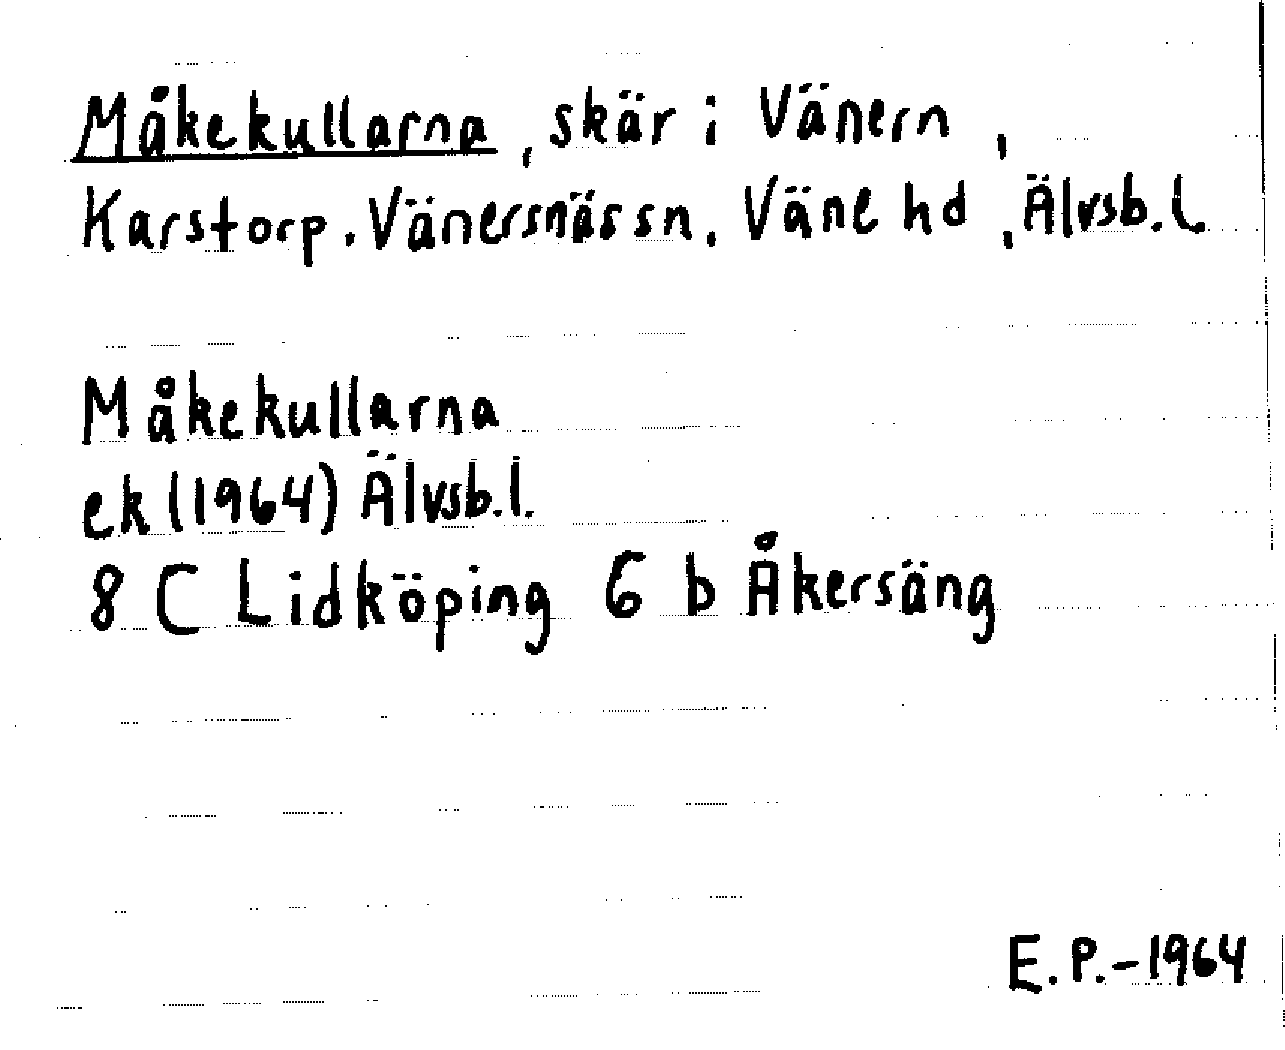 Måkekullarna, skär i Vänern,
Karstorp. Vänersnäs sn. Väne hd, Älvsb. l.
Måkekullarna
ek (1964) Älvsb. l.
8 C Lidköping 6 b Åkersäng
E. P. - 1964